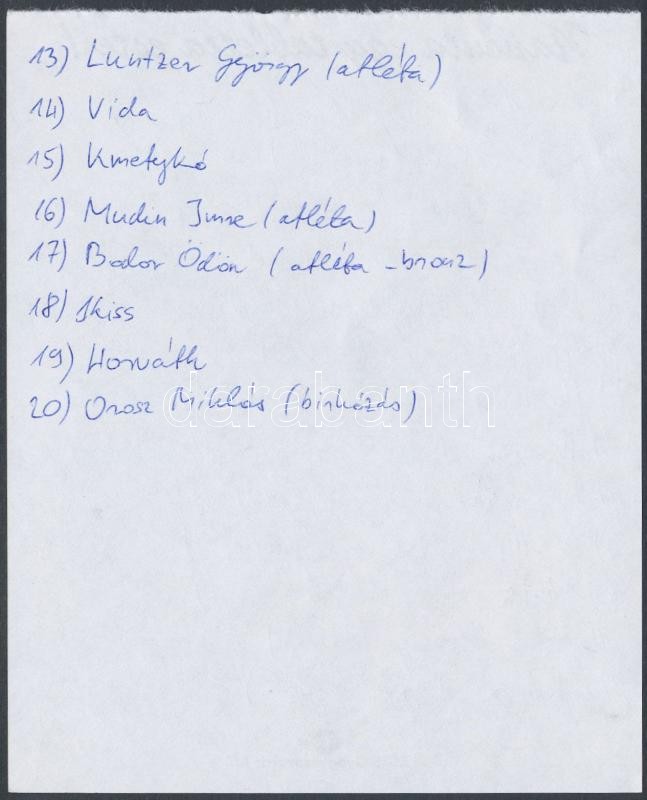 13) Luntzer György (atléta)
14) Vida
15) Kmetykó
16) Mudin Imre (atléta)
17) Bodor Ödön (atléta - bronz)
18) Kiss
19) Horváth
20) Orosz Miklós (birkózás)
darabanth